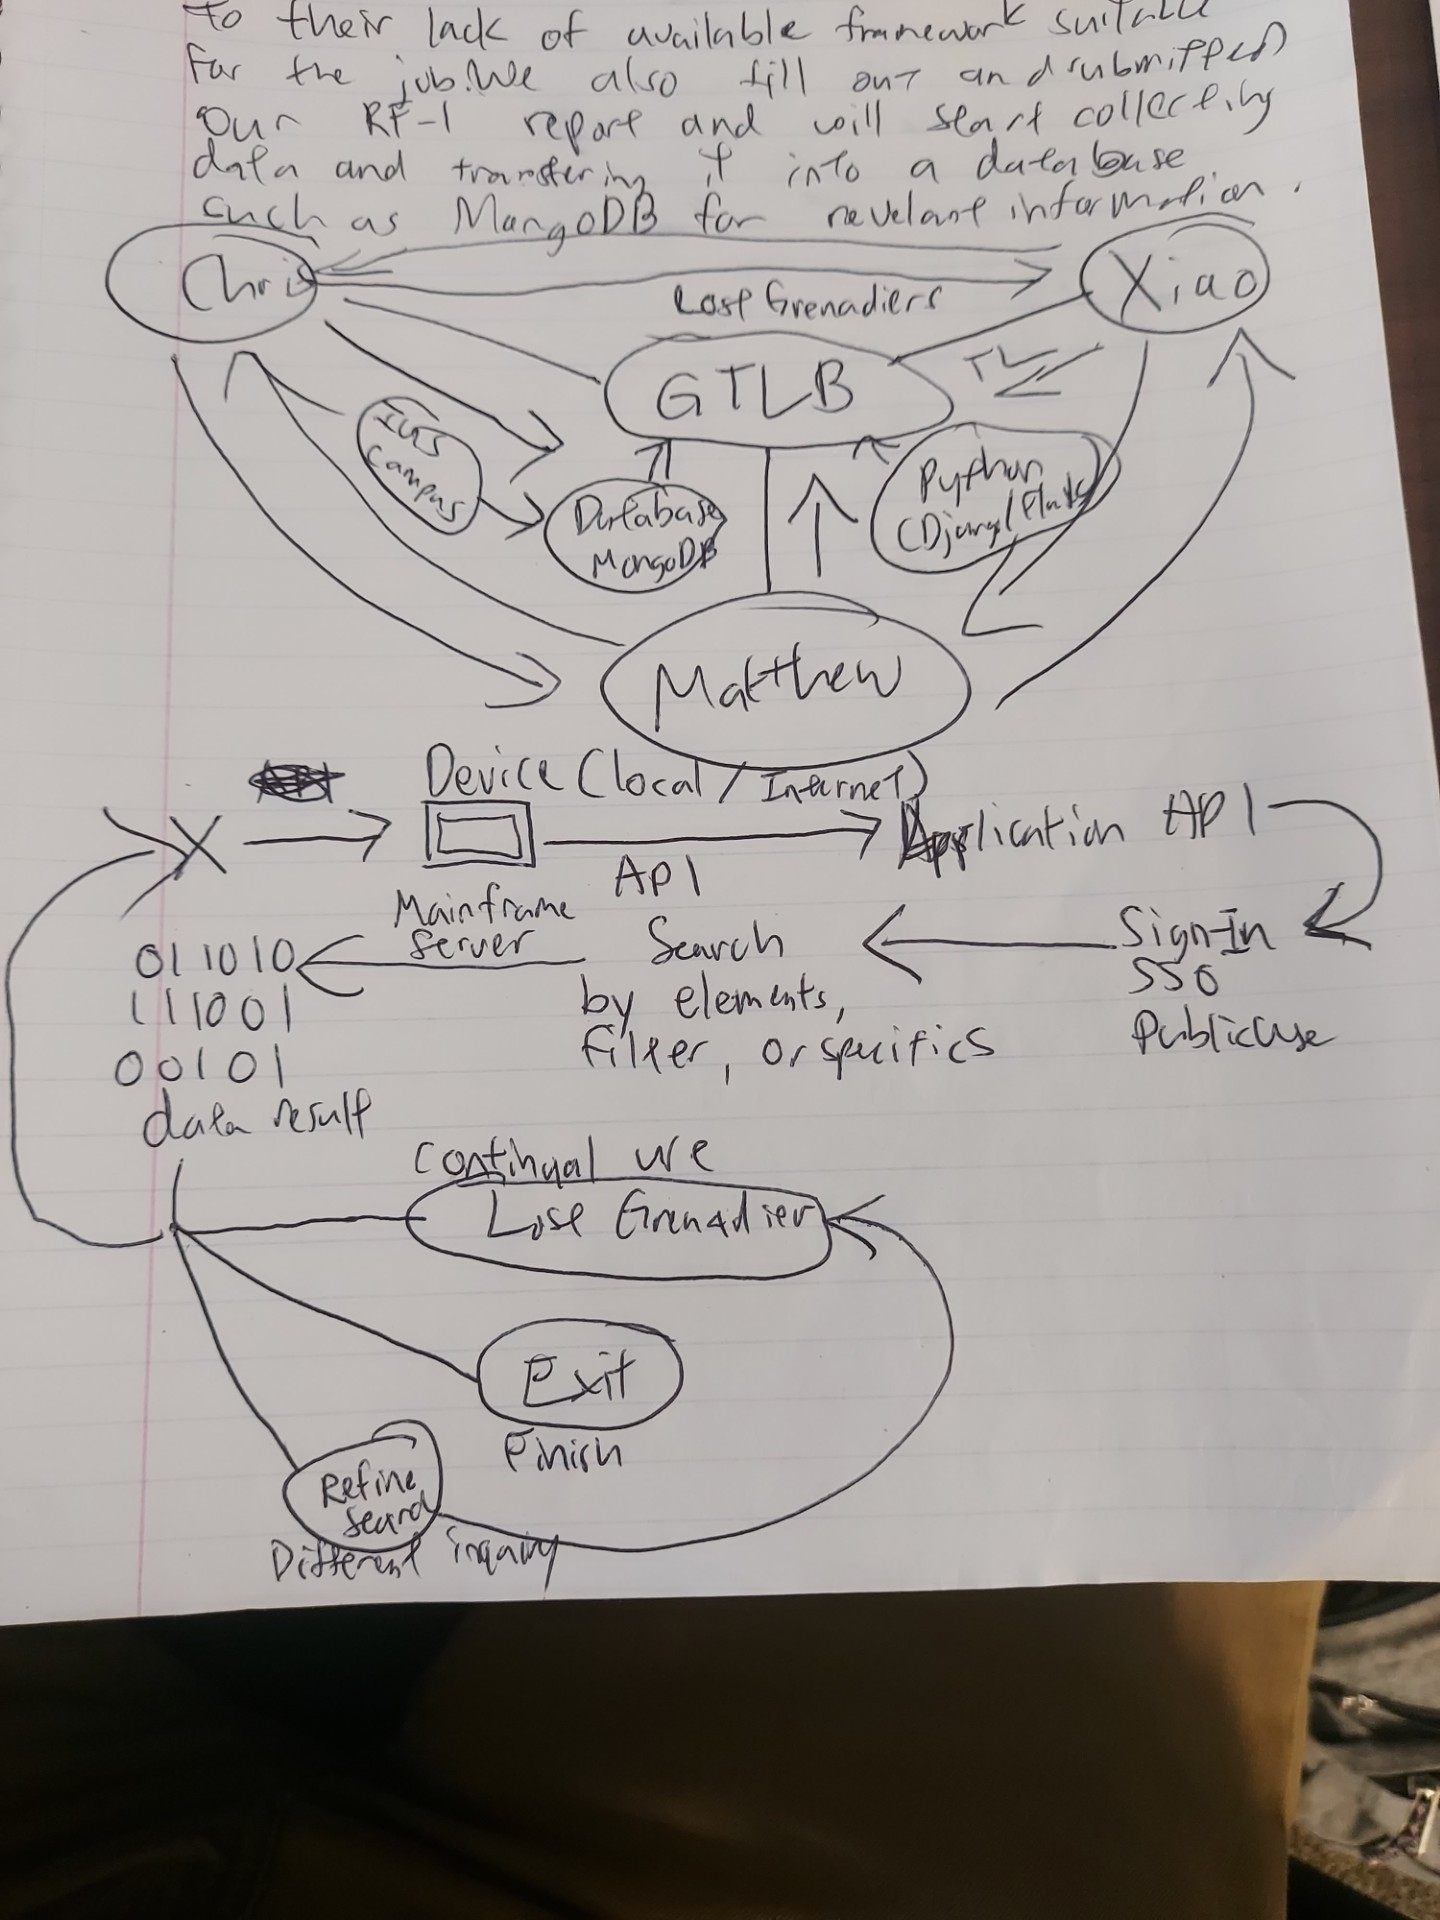 to their lack of available framework suitable
for the job. We also fill out and submitted
our RF-1 report and will start collecting
data and transfering it into a database
such as MangoDB for revelant information.
Chris
Xiao
Lost Grenadiers
GTLB
TL
Campus
Database
MongoDB
Python
(Django/Flask)
Matthew
Device (local / Internet)
X
API
Application API
Mainframe
server
Search
by elements,
filter, or specifics
Sign-In
SSO
Public use
011010
111001
00101
data result
Continual use
Lost Grenadier
Exit
Finish
Refine
search
Different inquiry